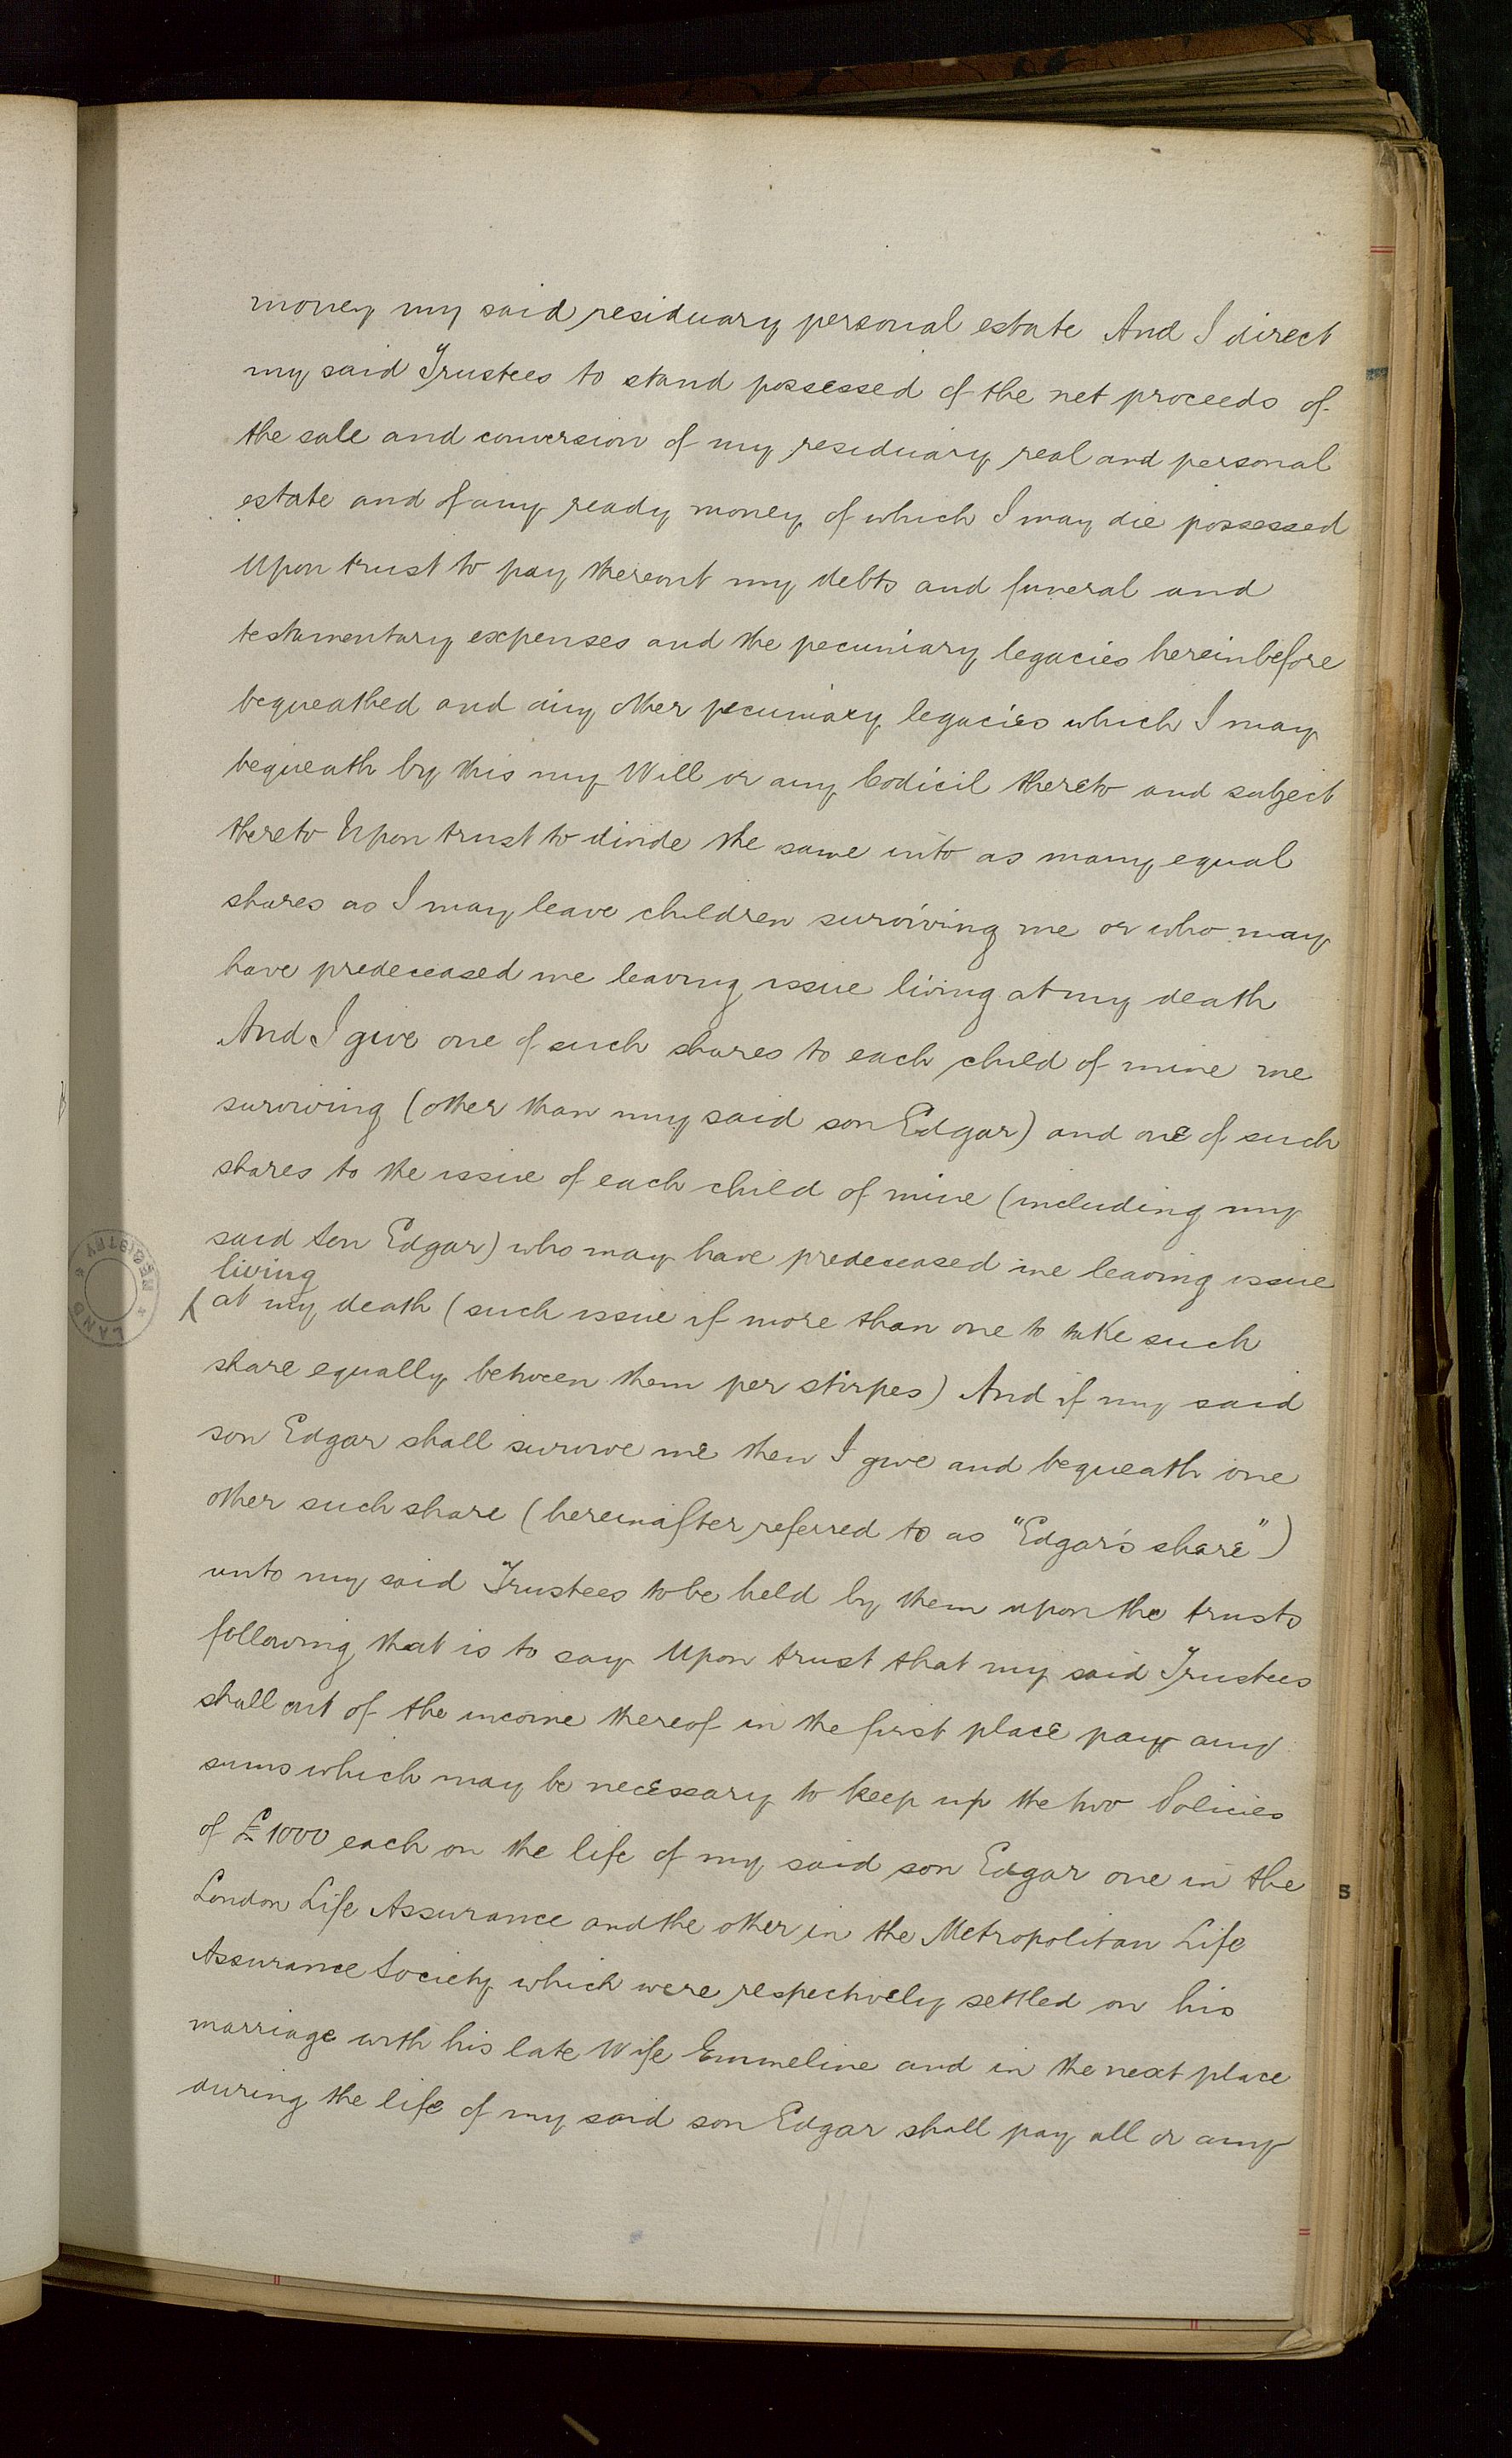 money my said residuary personal estate And I direct
my said Trustees to stand possessed of the net proceeds of
the sale and conversion of my residuary real and personal
estate and of any ready money of which I may die possessed
Upon trust to pay thereout my debts and funeral and
testamentary expenses and the pecuniary legacies hereinbefore
bequeathed and any other pecuniary legacies which I may
bequeath by this my Will or any Codicil thereto and subject
thereto Upon trust to divide the same into as many equal
shares as I may leave children surviving me or who may
have predeceased me leaving issue living at my death
And I give one of such shares to each child of mine me
surviving (other than my said son Edgar) and one of such
shares to the issue of each child of mine (including my
said son Edgar) who may have predeceased me leaving issue
living
at my death (such issue if more than one to take such
share equally between them per stirpes) And if my said
son Edgar shall survive me then I give and bequeath one
other such share (hereinafter referred to as "Edgar's share")
unto my said Trustees to be held by them upon the trusts
following that is to say Upon trust that my said Trustees
shall out of the income thereof in the first place pay any
sums which may be necessary to keep up the two Policies
of £1000 each on the life of my said son Edgar one in the
London Life Assurance and the other in the Metropolitan Life
Assurance Society which were respectively settled on his
marriage with his late Wife Emmeline and in the next place
during the life of my said son Edgar shall pay all or any
LAND REGISTRY
S